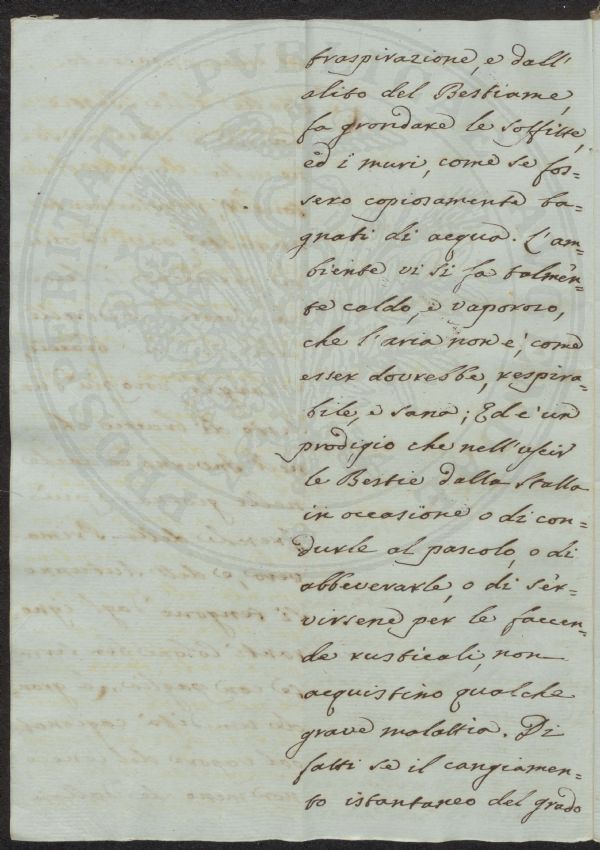 traspirazione, e dall'
alito del Bestiame,
fa grondare le soffitte,
ed i muri, come se fos=
sero copiosamente ba=
gnati di acqua. L'am=
biente vi si fa talmen=
te caldo, e vaporoso,
che l'aria non e', come
esser dovrebbe, respira=
bile, e sana; Ed e' un
prodigio che nell'uscir
le Bestie dalla Stalla
in occasione o di con=
durle al pascolo, o di
abbeverarle, o di ser=
virsene per le faccen=
de rusticali, non
acquistino qualche
grave malattia. Di
fatti se il cangiamen=
to istantaneo del grado
PROSPERITATI PUBLICAE